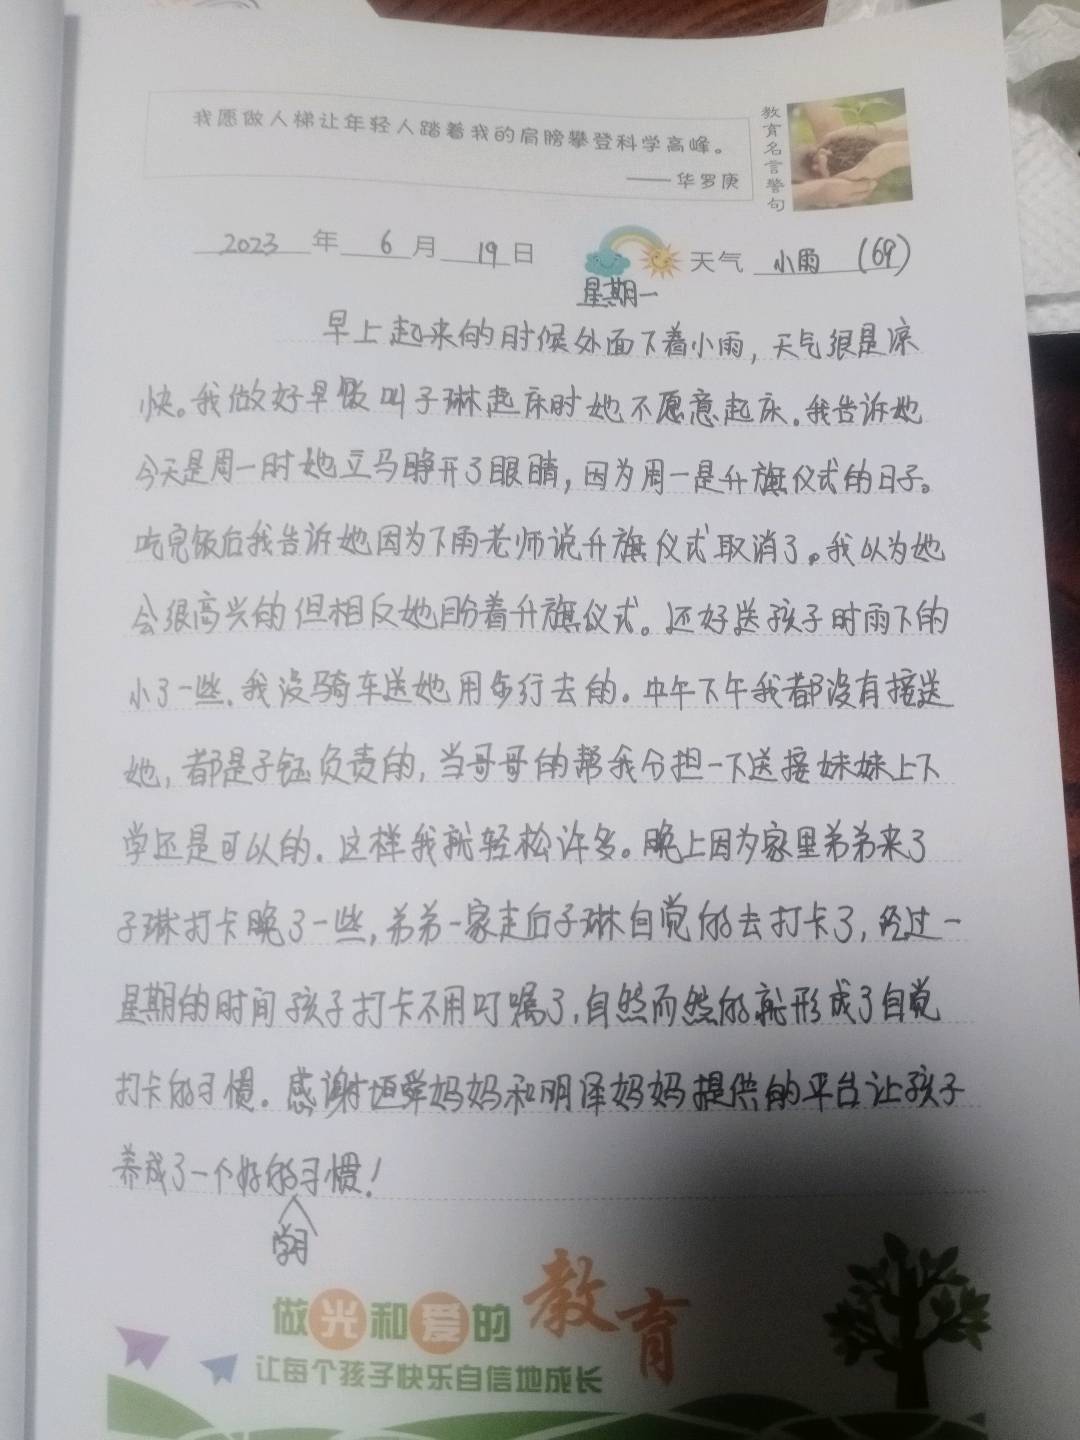 我愿做人梯让年轻人踏着我的肩膀攀登科学高峰。
——华罗庚
教育名言警句
2023年6月19日 天气 小雨 (69)
星期一
早上起来的时候外面下着小雨，天气很是凉
快。我做好早饭叫子琳起床时她不愿意起床。我告诉她
今天是周一时她立马睁开了眼睛，因为周一是升旗仪式的日子。
吃完饭后我告诉她因为下雨老师说升旗仪式取消了。我以为她
会很高兴的但相反她盼着升旗仪式。还好送孩子时雨下的
小了一些，我没骑车送她用步行去的。中午下午我都没有接送
她，都是子钰负责的，当哥哥的帮我分担一下送接妹妹上下
学还是可以的。这样我就轻松许多。晚上因为家里弟弟来了
子琳打卡晚了一些，弟弟一家走后子琳自觉的去打卡了，经过一
星期的时间孩子打卡不用叮嘱了，自然而然的就形成了自觉
打卡的习惯。感谢垣舜妈妈和明泽妈妈提供的平台让孩子
养成了一个好的习惯！
学
做光和爱的教育
让每个孩子快乐自信地成长